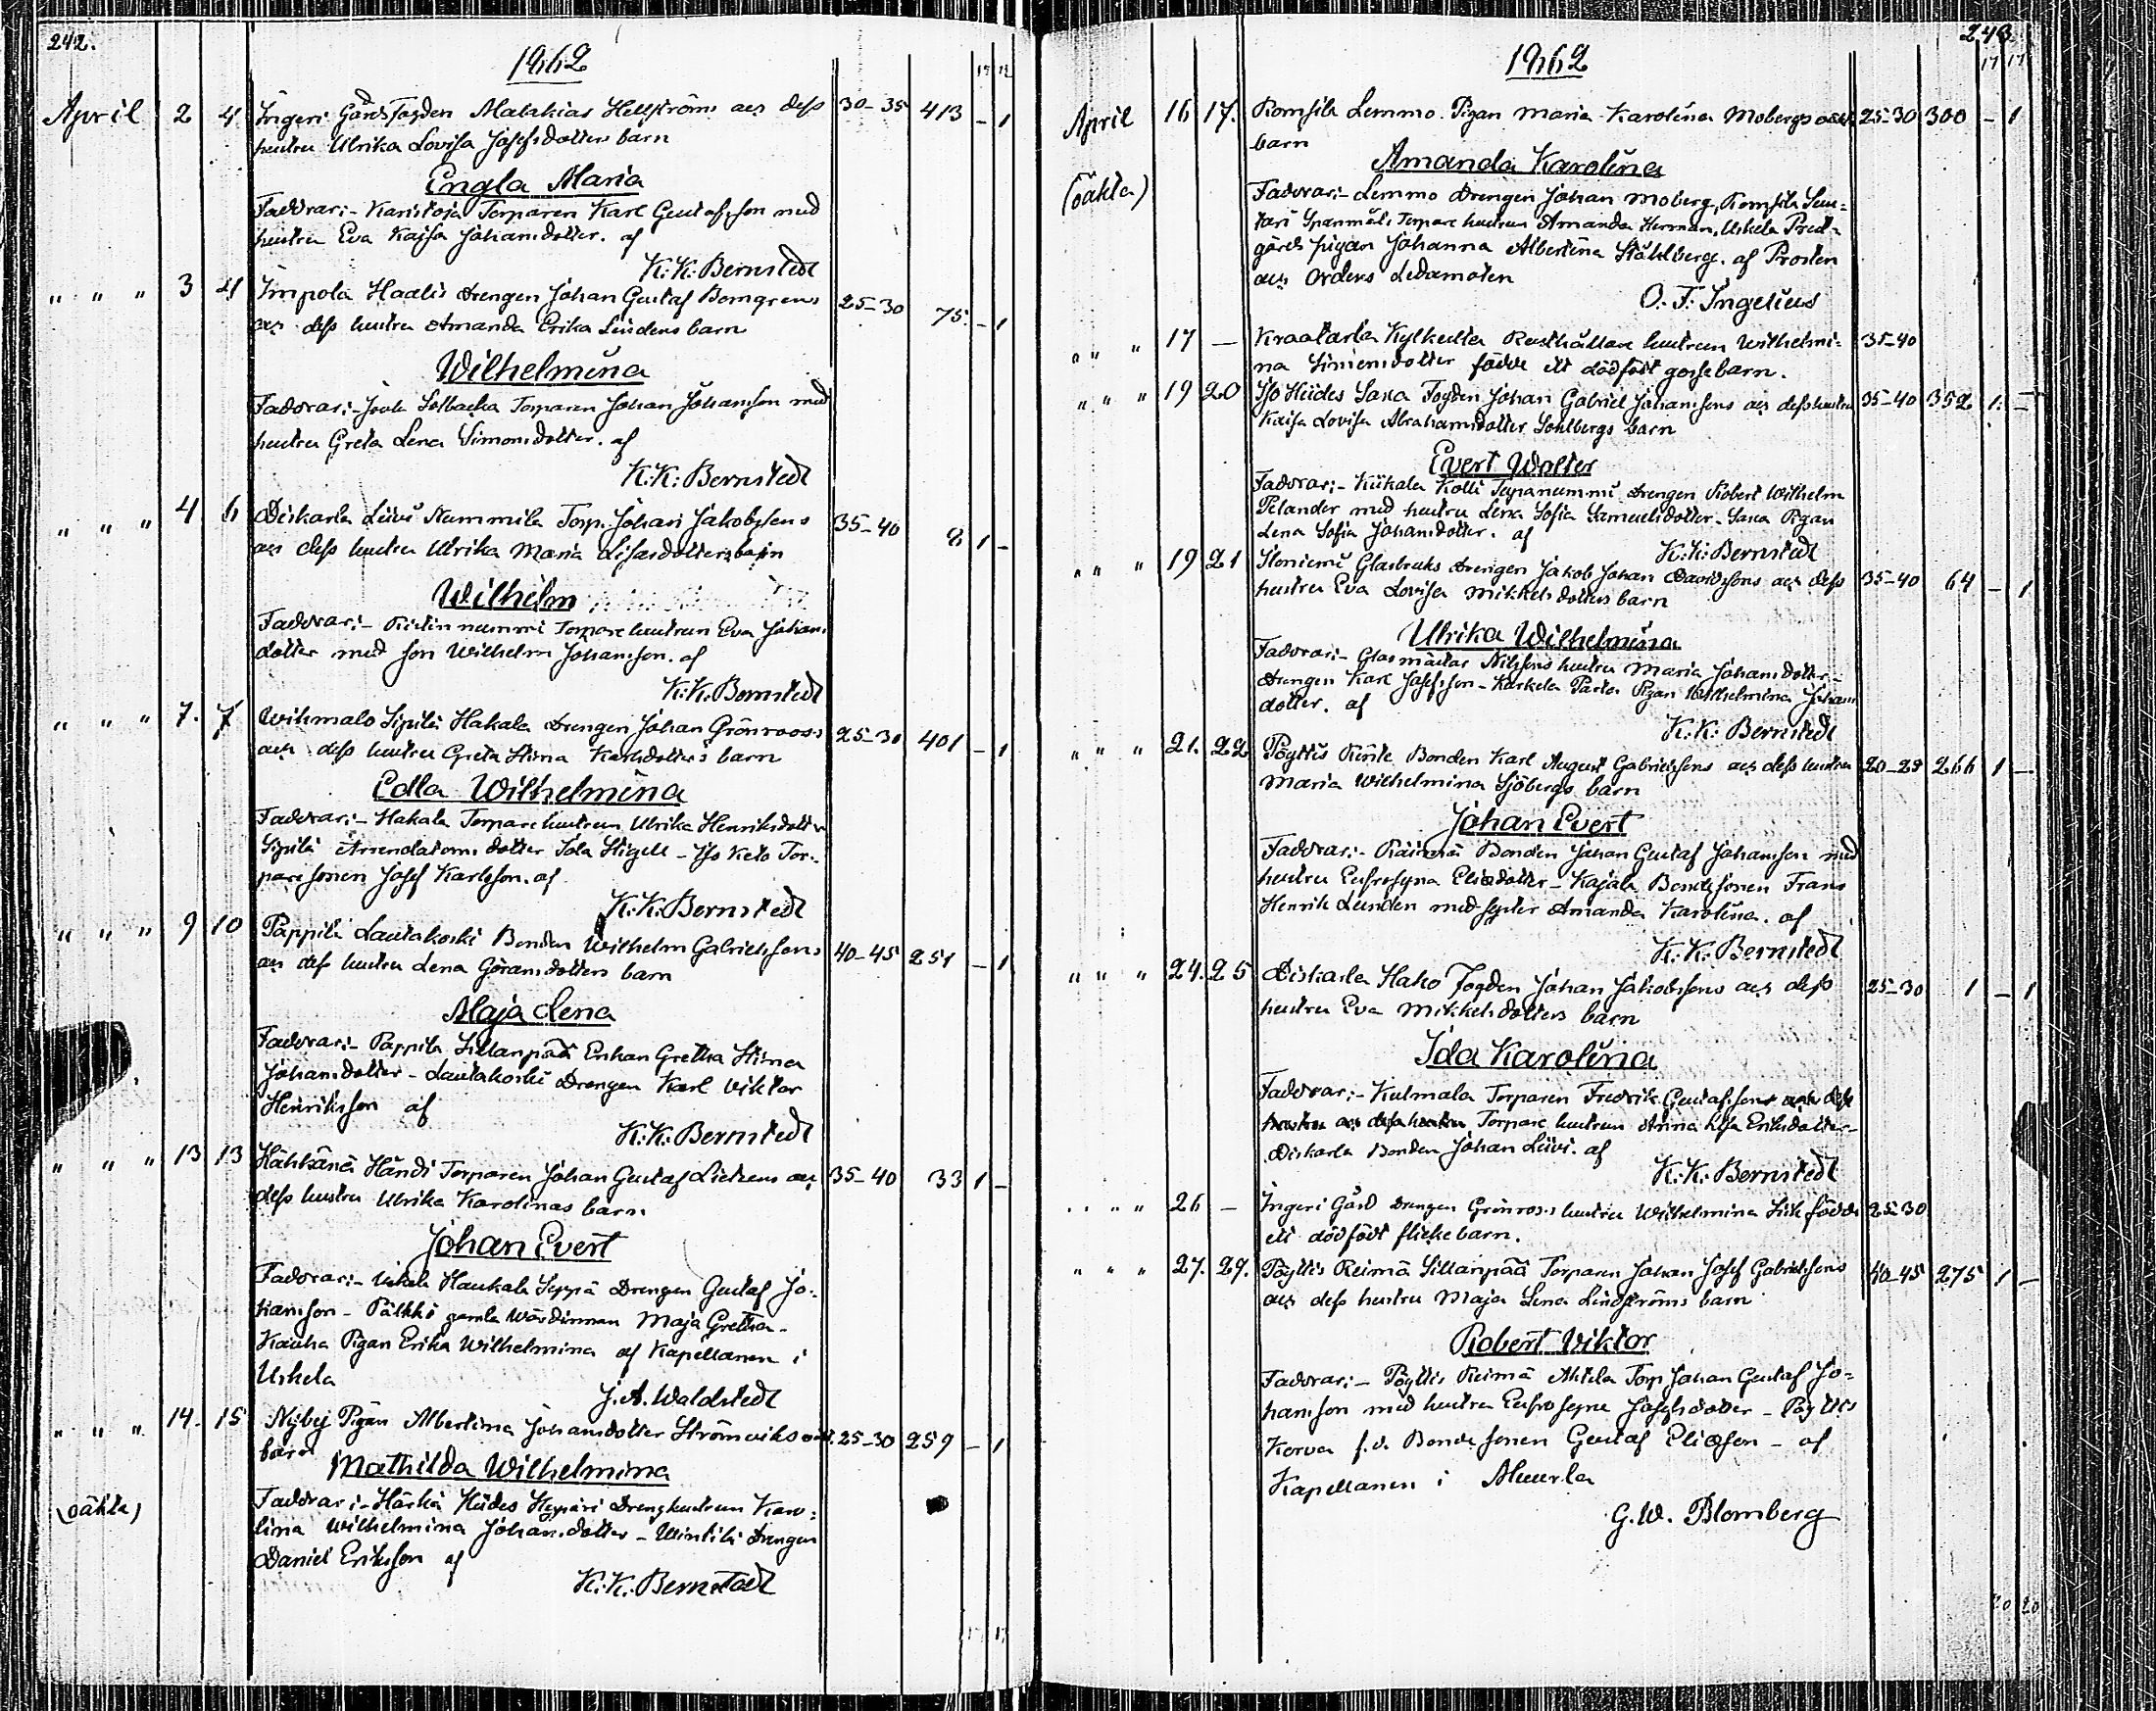 242.
1862
17 12
April 2 4 Ingeri Gårds Fogden Malakias Hellströms och dess 30-35 413 - 1
hustru Ulrika Lovisa Josefsdotters barn
Engla Maria
Faddrar:- Karistoja Torparen Karl Gustafsson med
hustru Eva Kajsa Johansdotter. af
K: K: Bernstedt
" " " 3 4 Impola Haalis Drengen Johan Gustaf Bomgrens 25-30 75. - 1
och dess hustru Amanda Erika Lindens barn
Wilhelmina
Faddrar:- Solbacka Torparen Johan Johansson med
hustru Greta Lena Simonsdotter. af
K: K: Bernstedt
" " " 4 6 Diskarla Liivi Nummila Torp. Johan Jakobssons 35-40 8 1 -
och dess hustru Ulrika Maria barn
Wilhelm
Faddrar:- Ristinummi Torpare hustrun Eva Johans
dotter med son Wilhelm Johansson. af
K: K: Bernstedt
" " " 7. 7 Wihmalo Sipilä Hakala Drengen Johan Grönroos's 25-30 401 - 1
och dess hustru Greta Stina Karlsdotter's barn
Edla Wilhelmina
Faddrar:- Hakala Torpare hustrun Ulrika Henriksdotter
Sipilä Arrendatorns dotter Ida Stigell - Iso Keto Tor-
pare sonen Josef Karlsson. af
K: K: Bernstedt
" " " 9 10 Pappila Lautakoski Bonden Wilhelm Gabrielssons 40-45 251 - 1
och dess hustru Lena Göransdotters barn
Maja Lena
Faddrar:- Pappila Sillanpää Enkan Gretha Stina
Johansdotter - Lautakoski Drengen Karl Viktor
Henriksson af
K: K: Bernstedt
" " " 13 13 Kähkänä Händi Torparen Johan Gustaf och 35-40 33 1 -
dess hustru Ulrika Karolinas barn
Johan Evert
Faddrar:- Uskela Haukala Seppä Drengen Gustaf Jo-
hansson - Pälkki gamla Wärdinnan Maja Gretha -
Kauha Pigan Erika Wilhelmina af Kapellanen i
Uskela
J. A. Waldstedt
" " " 14. 15 Nyby Pigan Albertina Johansdotter Strömviks 25-30 259 - 1
barn
Mathilda Wilhelmina
(oäkta)
Faddrar:- Härkä Hiides Drenghustrun Karo-
lina Wilhelmina Johansdotter - Wintilä Drengen
Daniel Eriksson af
K: K: Bernstedt
243.
1862
17 17
April 16 17. Romsila Lemmo Pigan Maria Karolina Mobergs 25-30 300 - 1
barn
Amanda Karolina
(oäkta)
Faddrar:- Lemmo Drengen Johan Moberg, Romsila
Spanmäls Torpare hustrun Amanda Herman, Uskela Prest-
gårds pigan Johanna Albertina Ståhlberg. af Prosten
och Ordens Ledamoten
O. F. Ingelius
" " " 17 — Kraatarla Kylkulla Rusthållare hustrun Wilhelmi- 35-40
na Simonsdotter födde ett dödfödt gossebarn.
" " " 19 20 Iso Hiides Saxa Fogden Johan Gabriel Johanssons och dess hustru 35-40 352 1. -
Kaisa Lovisa Abrahamsdotter Sohlbergs barn
Evert Walter
Faddrar:- Kiikala Kolli Drengen Robert Wilhelm
Pelander med hustru Lena Sofia Samuelsdotter - Saxa Pigan
Lena Sofia Johansdotter. af
K: K: Bernstedt
" " " 19 21 Stoniemi Glasbruks Drengen Jakob Johan Davidssons och dess 35-40 64 - 1
hustru Eva Lovisa Mikkelsdotters barn
Ulrika Wilhelmina
Faddrar:- Glasmästar Nilssons hustru Maria Johansdotter -
Drengen Karl Josefsson - Karkela Pigan Wilhelmina Johans
dotter. af
K: K: Bernstedt
" " " 21. 22 Pöyttis Bonden Karl August Gabrielssons och dess hustru 20-25 266 1 -
Maria Wilhelmina Sjöbergs barn
Johan Evert
Faddrar:- Bonden Johan Gustaf Johansson med
hustru Eufrosyna Eliedotter - Kajala Bondesonen Frans
Henrik Lunden med syster Amanda Karolina. af
K: K: Bernstedt
" " " 24. 25 Diskarla Hako Fogden Johan Jakobssons och dess 25-30 1 - 1
hustru Eva Mikkelsdotters barn
Ida Karolina
Faddrar:- Kulmala Torparen Fredrik Gustafsson och dess
hustru Torpare hustrun Anna Lisa Eriksdotter -
Diskarla Bonden Johan Liivi. af
K: K: Bernstedt
" " " 26 - Ingeri Gård Drengen Grönroos's hustru Wilhelmina födde 25-30
ett dödfödt flickebarn.
" " " 27. 29. Pöyttis Reimä Sillanpää Torparen Johan Josef Gabrielssons 40-45 275 1 -
och dess hustru Maja Lena Lindströms barn
Robert Viktor
Faddrar:- Pöyttis Reimä Ahtela Torp. Johan Gustaf Jo-
hansson med hustru Eufrosyne Josefsdotter - Pöyttis
Korva f.d. Bonde sonen Gustaf Eliasson - af
Kapellanen i Muurla
G. W. Blomberg
20 20